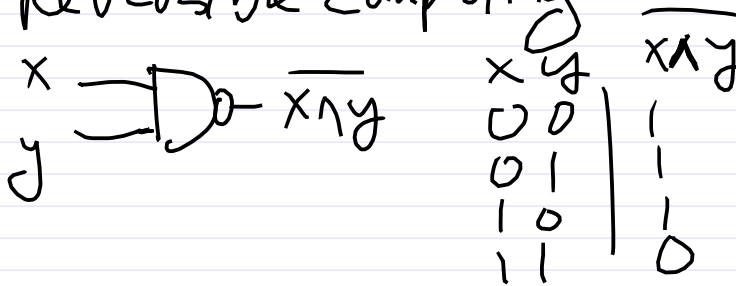 Reversible Computing
x y $\overline{x \wedge y}$
x
y $\overline{x \wedge y}$
0 0 | 1
0 1 | 1
1 0 | 1
1 1 | 0